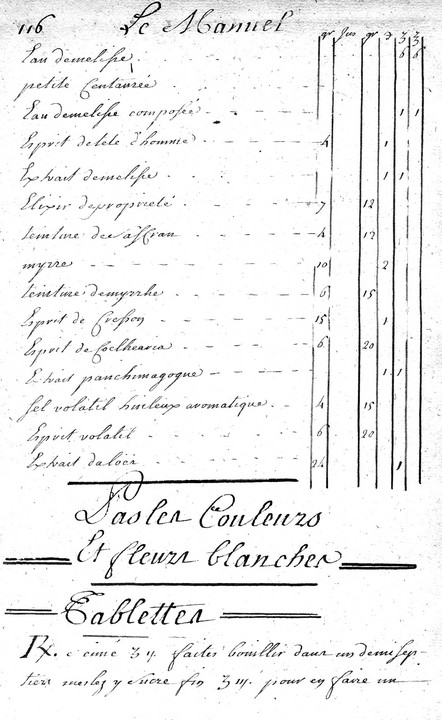 116 Le Manuel
gr Jus gr ʒ ʒ
Eau demelisse 6 6
petite Centaurée
Eau demelisse composée 1 1
Esprit detete d'homme 4 1
Extrait demelisse 1 1
Elixir depropriété 7 12
teinture de saffran 4 12
myrre 10 2
teinture demyrrhe 6 15
Esprit de Cresson 15 1
Esprit de Coelhearia 6 20
Extrait panchimagogue 1 1
sel volatil huileux aromatique 4 15
Esprit volatil 6 20
Extrait daloës 24 1
Pasles Couleurs
Et fleurs blanches
Tablettes
℞. ʒ ij. faites bouillir dans un demisep-
tiers meslez y sucre fin ʒ iij. pour en faire un